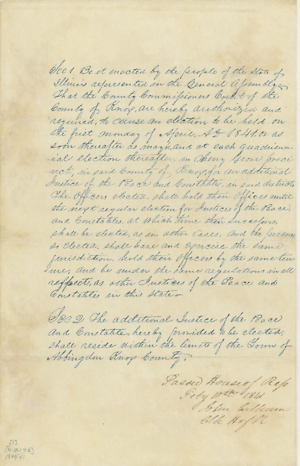 Sec 1. Be it enacted by the people of the State of
Illinois represented in the General Assembly
That the County Commissioners Court of the
County of Knox, are hereby authorized and
required, to cause an election to be held on
the first monday of April, AD 1841 or as
soon thereafter as may be, and at each quadren-
nial election thereafter, in Henderson
precinct, in said County of Knox, for an additional
Justice of the Peace and Constable, in said
The Officers elected, shall hold their offices until
the next regular election for Justices of the Peace
and Constables, at which time their successors
shall be elected, as in other cases, and the persons
so elected, shall have and exercise the same
jurisdiction, hold their offices by the same tenure
, and be under the same regulations in all
respects, as other Justices of the Peace and
Constables in this state
Sec 2 The additional Justice of the Peace
and Constable, hereby provided to be elected,
shall reside within the limits of the Town of
Abingdon Knox County.
Passed House of Reps
Feby 1841
John Calhoun
Clk H of R